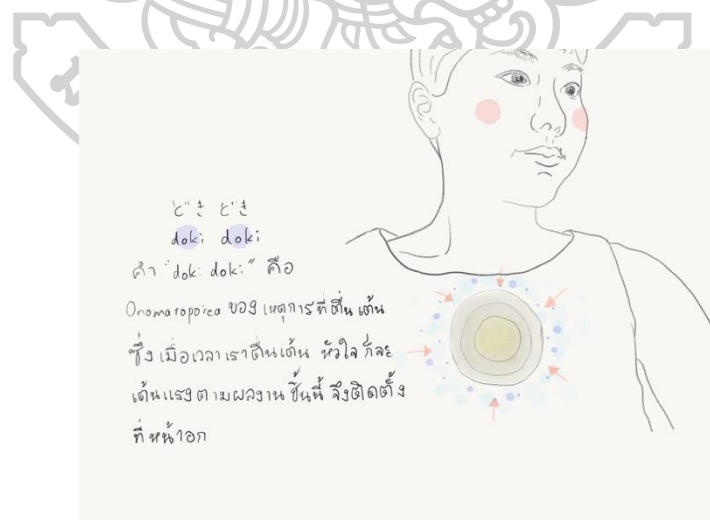 どき どき
doki doki
คำ "doki doki" คือ
Onomatopoiea ของ เหตุการที่ตื่นเต้น
ซึ่ง เมื่อเวลา เราตื่นเต้น หัวใจ ก็จะ
เต้นแรง ตามผลงาน ชิ้นนี้ จึงติดตั้ง
ที่ หน้าอก